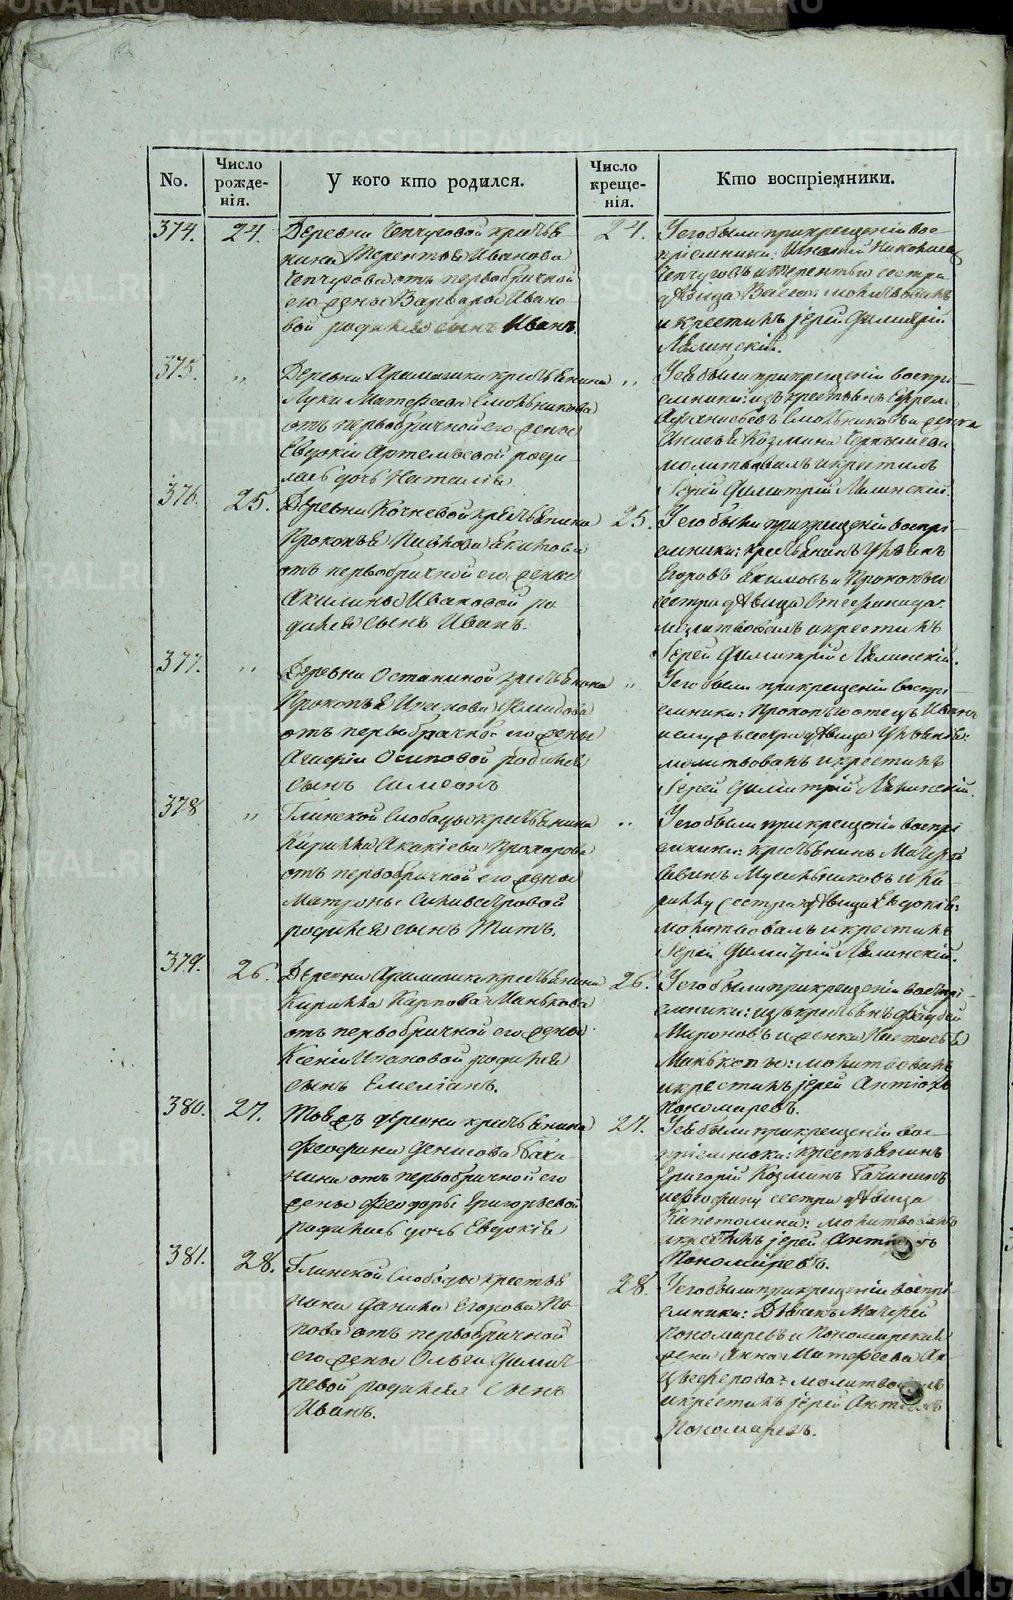 No.
Число рожде-нія.
У кого кто родился.
Число креще-нія.
Кто воспріемники.
374. 24.
Деревни Чепчуговой крестья
нина Терентья Иванова
Чепчугова отъ первобрачной
его жены Варвары Ивано
вой родился сынъ Иванъ.
24.
У его были при крещеніи вос
пріемники: Игнатій
Чепчуговъ и Терентья сестра
дѣвица молитвовалъ
и крестилъ іерей Димитрій
Ляпинскій.
375. „
Деревни Арамашки крестьянина
Луки Матѳеева Смольникова
отъ первобрачной его жены
Евдокіи Артемьевой роди
лась дочь Наталія
„
У ея были при крещеніи воспрі
емники: изъ крестьянъ Ефремъ
Смольниковъ и
Козмина
молитвовалъ и крестилъ
Іерей Димитрій Ляпинскій.
376. 25.
Деревни Кочневой крестьянина
Прокопья Якимова
отъ первобрачной его жены
Акилины Ивановой ро
дился сынъ Иванъ.
25.
У его были при крещеніи воспрі
емники: крестьянинъ
Егоровъ Екимовъ и Прокопья
сестра дѣвица Стефанида:
молитвовалъ и крестилъ
Іерей Димитрій Ляпинскій.
377. „
Деревни Останиной крестьянина
Прокопья Иванова
отъ первобрачной его жены
Осиповой родился
сынъ Симеонъ
„
У его были при крещеніи воспрі
емники: Прокопью отецъ Иванъ
и ему жъ сестра дѣвица
молитвовалъ и крестилъ
Іерей Димитрій Ляпинскій.
378 „
Глинской Слободы крестьянина
Кирилла Акакіева Прохорова
отъ первобрачной его жены
Матроны Сильвестровой
родился сынъ Титъ.
„
У его были при крещеніи воспрі
емники: крестьянинъ
Савинъ Мусальниковъ и Ки
риллу сестра дѣвица Евдокія:
молитвовалъ и крестилъ
Іерей Димитрій Ляпинскій.
379. 26.
Деревни Арамашки крестьянина
Кирилла Карпова Манькова
отъ первобрачной его жены
Ксеніи Ивановой родился
сынъ Емеліанъ.
26.
У его были при крещеніи воспрі
емники: изъ крестьянъ
Мироновъ и женка Настасья
Манькова: молитвовалъ
и крестилъ іерей Антіохъ
Пономаревъ.
380. 27.
Тояжъ деревни крестьянина
Феофана Денисова Бачи
нина отъ первобрачной его
жены Феодоры Григорьевой
родилась дочь Евдокія
27.
У ея были при крещеніи вос
пріемники: крестьянинъ
Григорій Козминъ Бачининъ
и Феофану сестра дѣвица
Капетолина: молитвовалъ
и крестилъ іерей Антіохъ
Пономаревъ.
381. 28.
Глинской Слободы крестья
нина Данила Егорова По
пова отъ первобрачной
его жены Ольги Димит
ревой родился сынъ
Иванъ.
28.
У его были при крещеніи воспрі
емники: Дьячекъ
Пономаревъ и Пономарская
жена Анна Матѳеева
молитвовалъ
и крестилъ іерей Антіохъ
Пономаревъ.